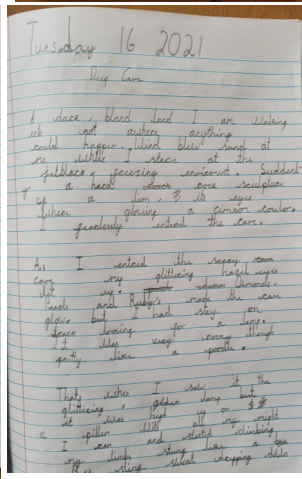 Tuesday 16 2021
Deep Cave
A dace, bland land I am walking
ink not awhere anything
could happen. Wind blew sand at
me while I stare at the
pitblack, freezing Sudden
y a head rock sculpture
of a lion, is eyes
where glowing a crimson coulor.
I entered the cave.
As I entered the
cave my glittering hazel eyes
lit up.
Pearls and Ruby's made the cave
glow but I had stay on
looking for a lamp.
It was very though
pretty like a
Thats when I saw it, the
glittering, golden lamp but
it was high up on
a piller. With all my might
I ran and started climbing
my limbs stung like a
Bee sting sweat dripping